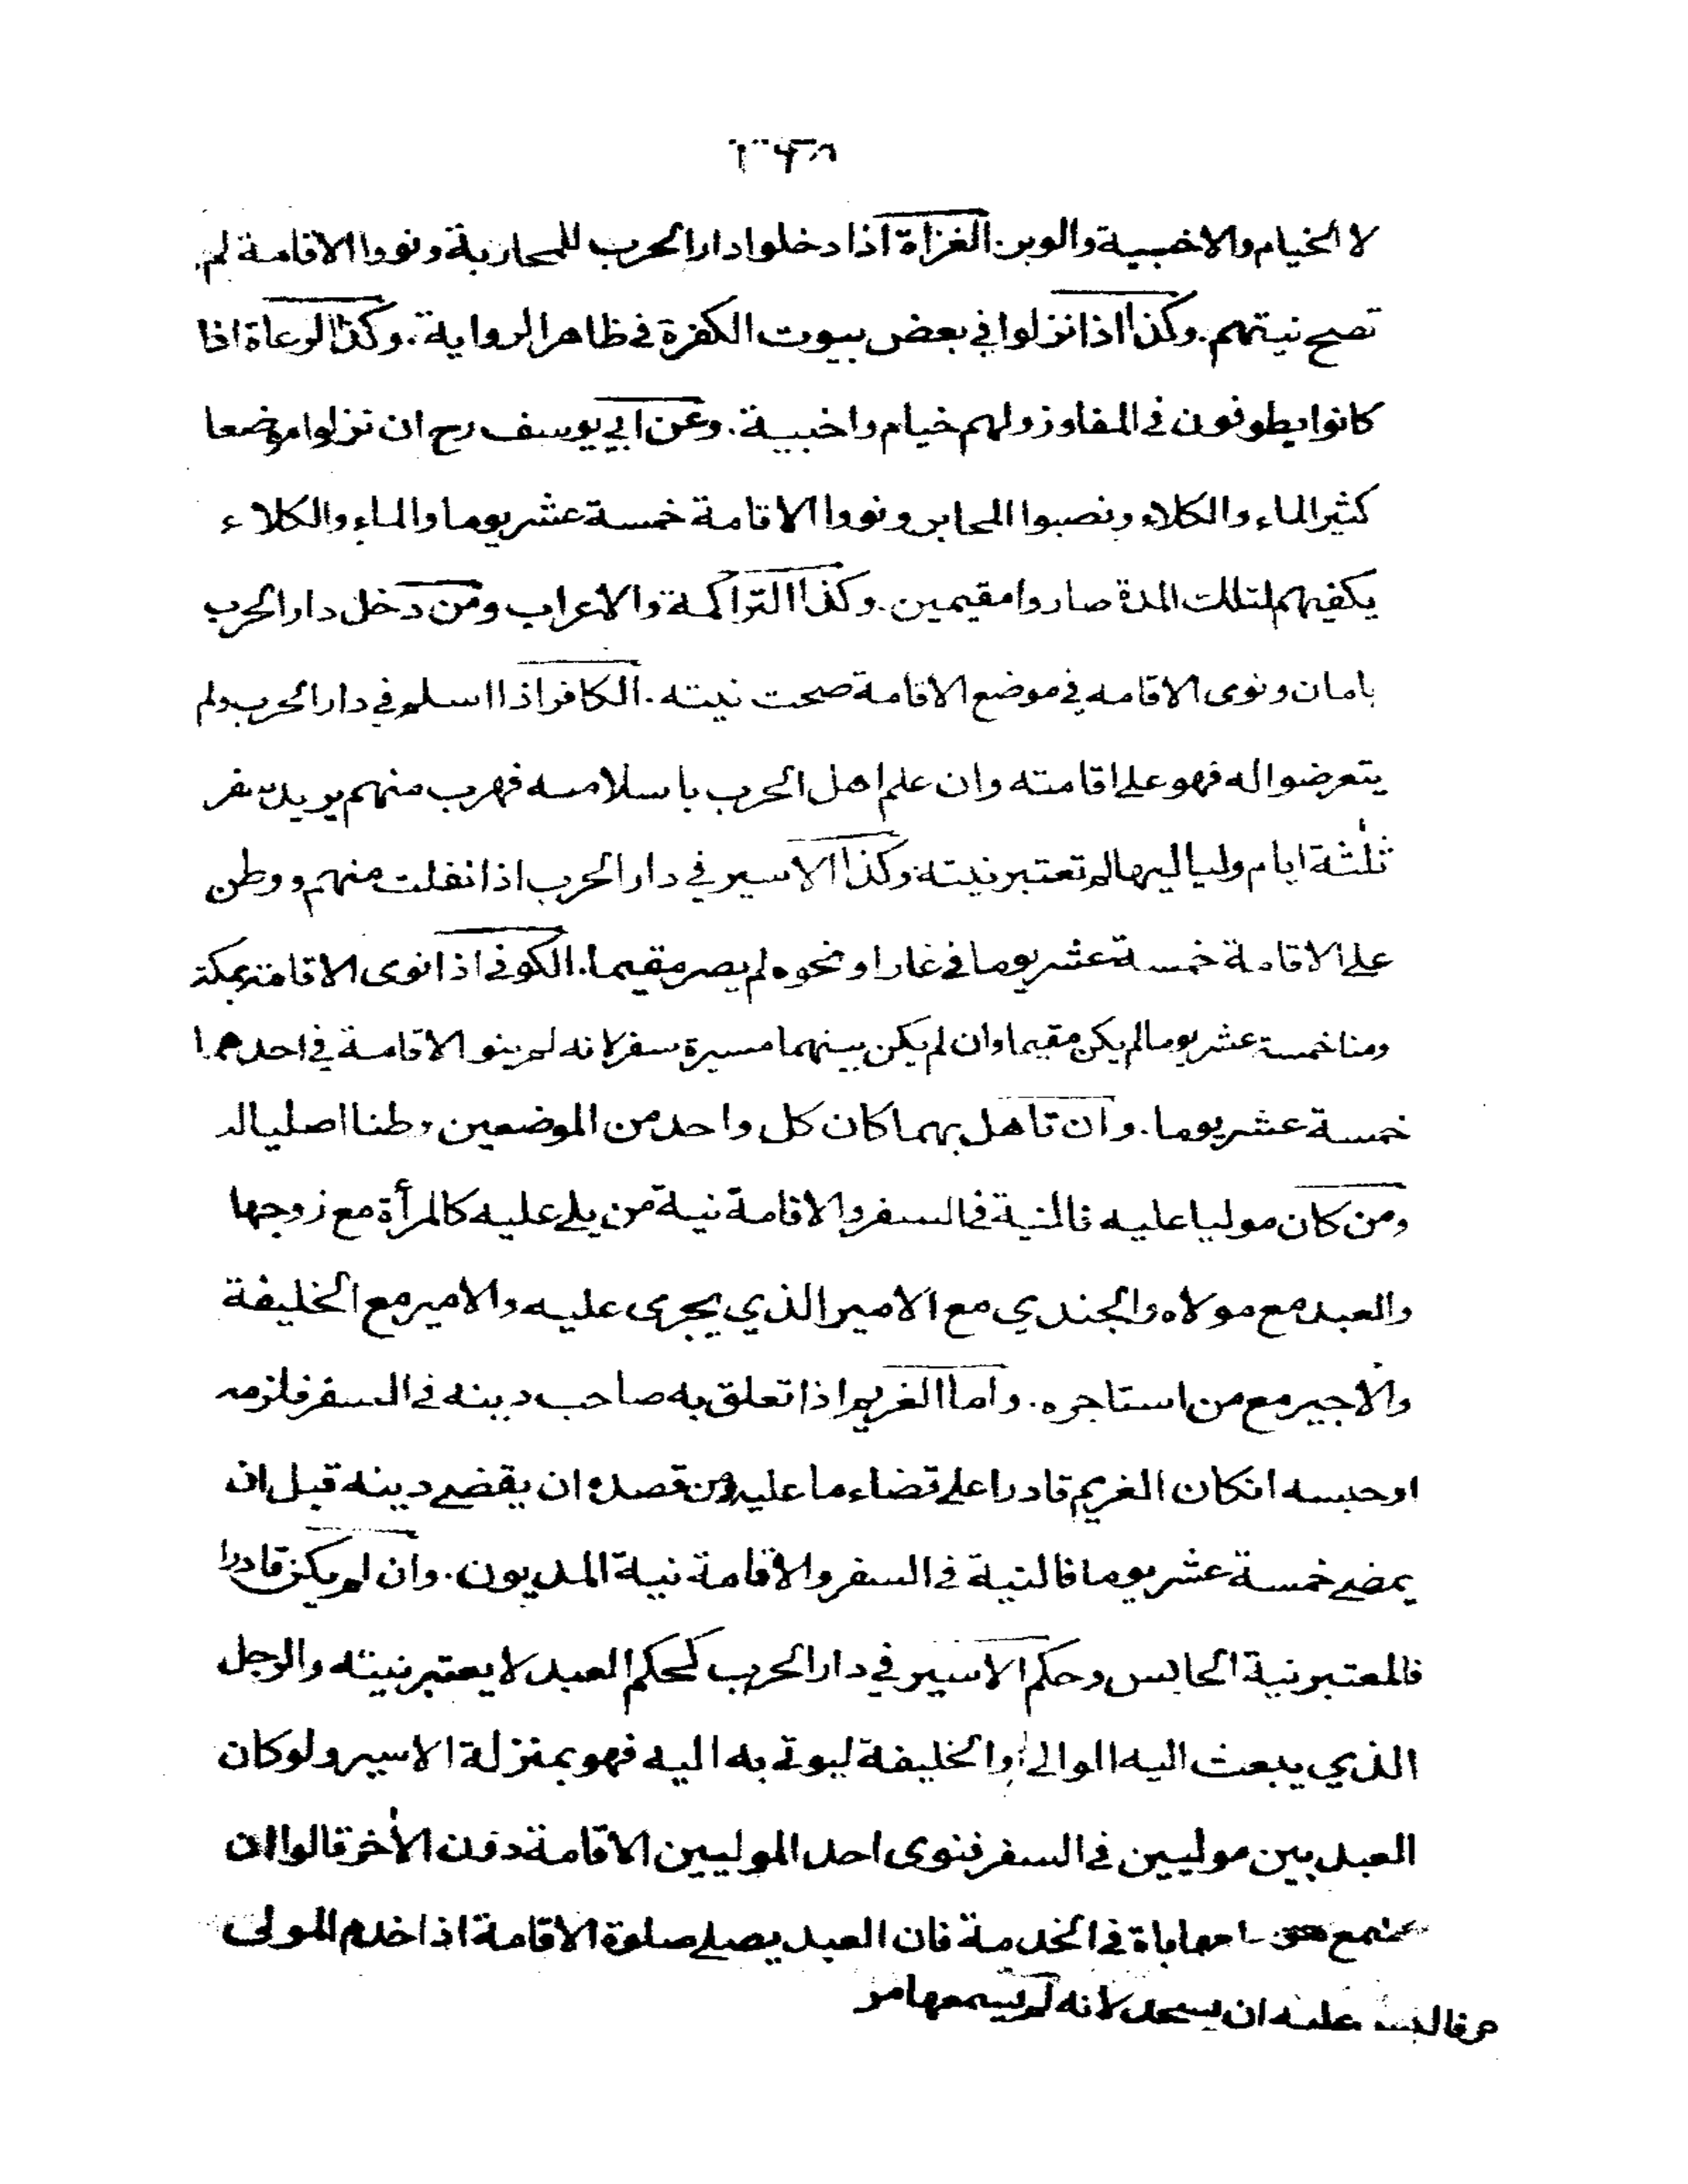 لا الخيام والاخبية والوبر. الغزاة اذا دخلوا دار الحرب للمحاربة ونووا الاقامة لم
تصح نيتهم. وكذا اذا نزلوا في بعض بيوت الكفرة في ظاهر الرواية. وكذا الرعاة اذا
كانوا يطوفون في المفاوز ولهم خيام واخبية. وعن ابي يوسف رح ان نزلوا موضعا
كثير الماء والكلاء ونصبوا المخابز ونووا الاقامة خمسة عشر يوما والماء والكلاء
يكفيهم لتلك المدة صاروا مقيمين. وكذا التراكمة والاعراب ومن دخل دار الحرب
بامان ونوى الاقامه في موضع الاقامة صحت نيته. الكافر اذا اسلم في دار الحرب ولم
يتعرضوا له فهو على اقامته وان علم اهل الحرب باسلامه فهرب منهم يريد سفر
ثلٰثة ايام ولياليها لم تعتبر نيته وكذا الاسير في دار الحرب اذا نفلت منهم ووطن
على الاقامة خمسة عشر يوما في غار او نحوه لم يصر مقيما. الكوفي اذا نوى الاقامة بمكة
ومنا خمسة عشر يوما لم يكن مقيما وان لم يكن بينهما مسيرة سفر لانه لم ينو الاقامة في احدهما
خمسة عشر يوما. وان تاهل بهما كان كل واحد من الموضعين وطنا اصليا له
ومن كان موليا عليه فالنية في السفر والاقامة نية من يلي عليه كالمرأة مع زوجها
والعبد مع مولاه والجندي مع الامير الذي يجرى عليه والامير مع الخليفة
والاجير مع من استاجره. واما الغريم اذا تعلق به صاحب دينه في السفر فلزمه
او حبسه انكان الغريم قادرا على قضاء ما عليه ومن قصده ان يقضي دينه قبل ان
يمضي خمسة عشر يوما فالنية في السفر والاقامة نية المديون. وان لم يكن قادرا
فالمعتبر نية الحابس وحكم الاسير في دار الحرب كحكم العبد لا يعتبر نيته والرجل
الذي يبعث اليه الوالي او الخليفة ليوتى به اليه فهو بمنزلة الاسير ولو كان
العبد بين موليين في السفر فنوى احد الموليين الاقامة دون الأخر قالوا ان
مهاباة في الخدمة فان العبد يصلي صلوة الاقامة اذا خدم المولى
عليه ان يسجد لانه لم يسمعها من